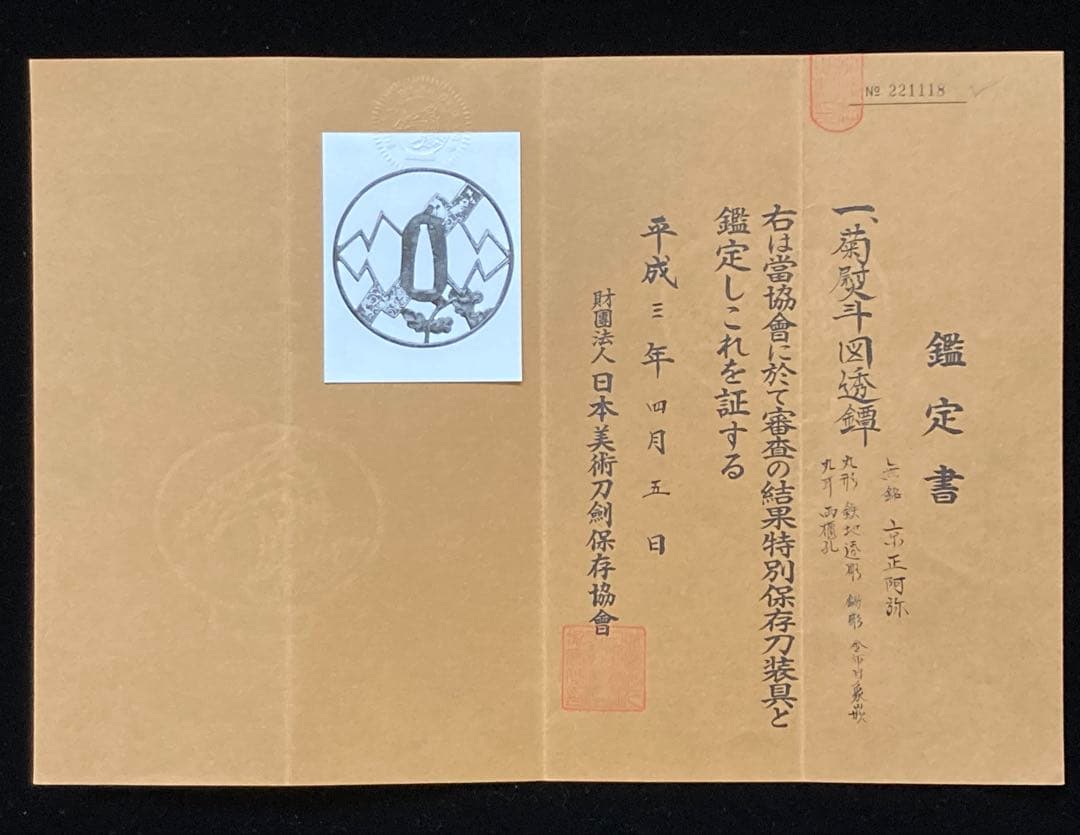 № 221118
鑑定書
一、菊熨斗図透鐔
無銘 京正阿弥
丸形 鉄地透彫 鋤彫 金布目象嵌
丸耳 両櫃孔
右は當協會に於て審査の結果特別保存刀装具と
鑑定しこれを証する
平成三年四月五日
財團法人 日本美術刀劍保存協會